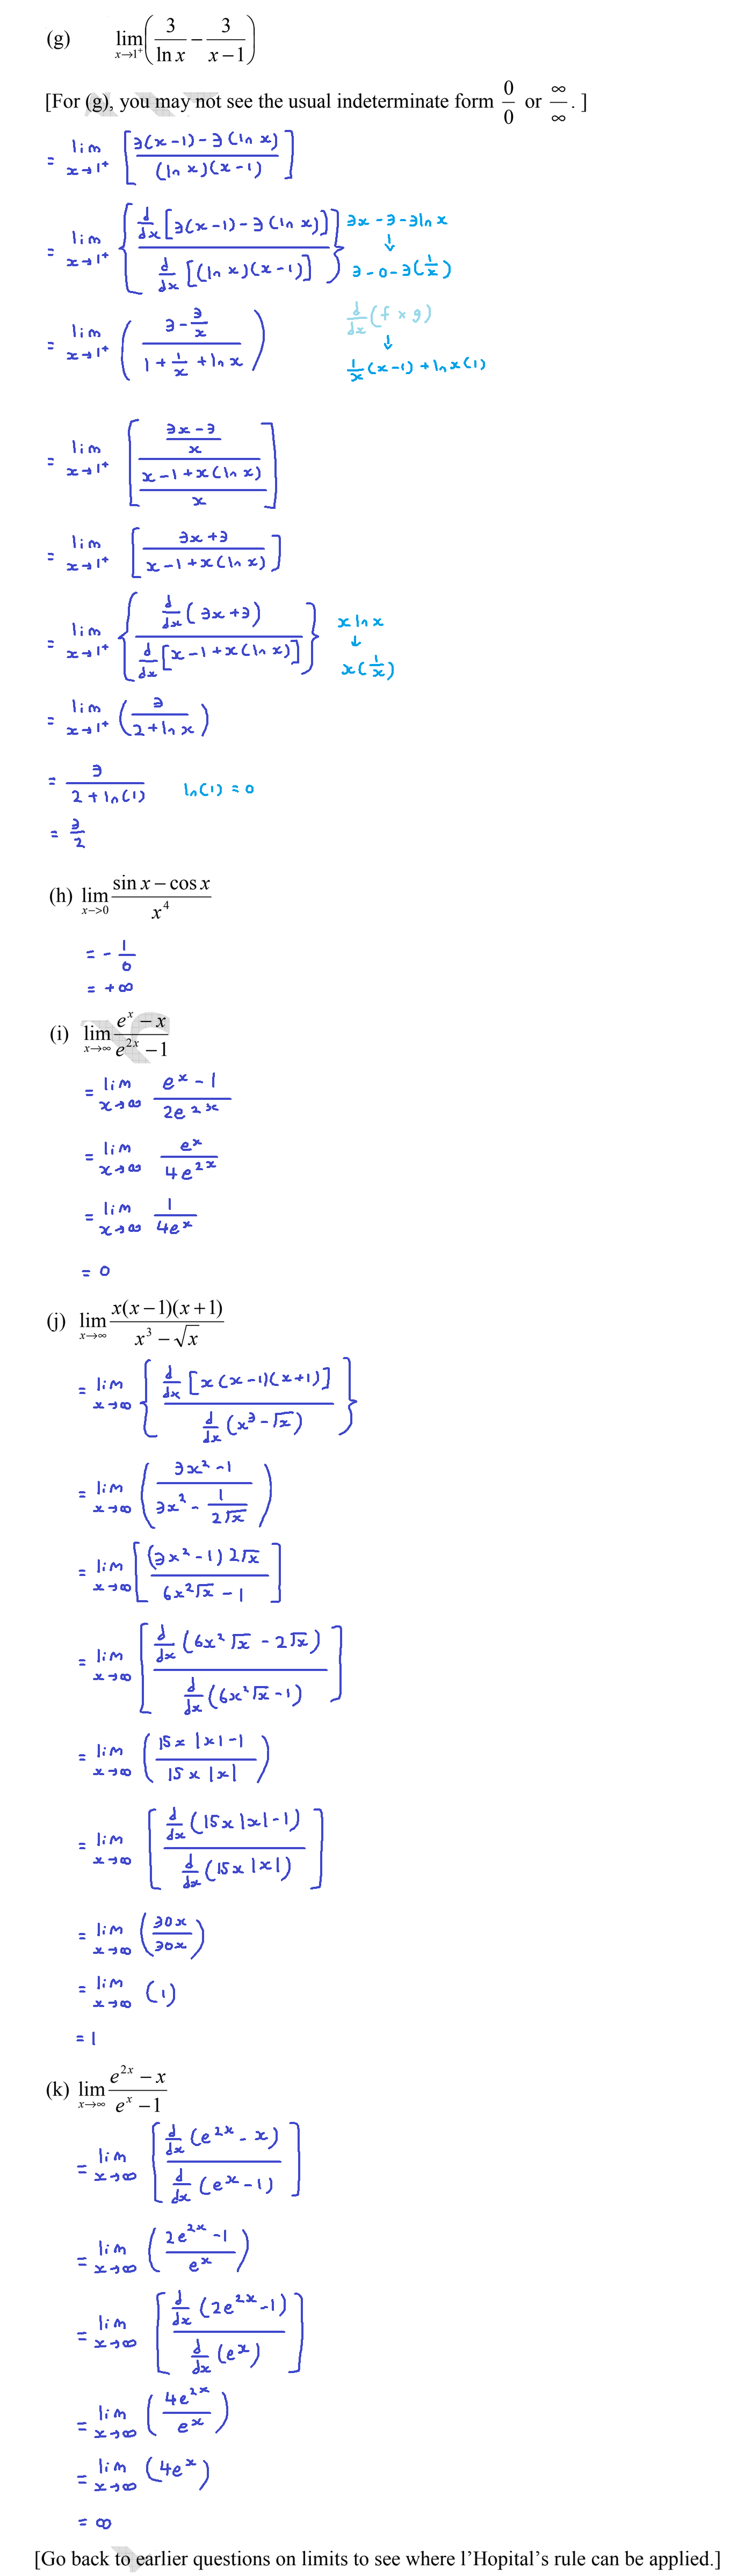 (g) lim x→1⁺ (3/ln x − 3/(x−1))
[For (g), you may not see the usual indeterminate form 0/0 or ∞/∞. ]
= lim x→1⁺ [(3(x−1)−3(ln x))/((ln x)(x−1))]
= lim x→1⁺ {(d/dx [3(x−1)−3(ln x)])/(d/dx [(ln x)(x−1)])} 3x−3−3ln x
↓
3−0−3(1/x)
= lim x→1⁺ ((3−3/x)/(1+1/x+ln x)) d/dx (f×g)
↓
1/x (x−1)+ln x(1)
= lim x→1⁺ [((3x−3)/x)/((x−1+x(ln x))/x)]
= lim x→1⁺ [(3x+3)/(x−1+x(ln x))]
= lim x→1⁺ {(d/dx (3x+3))/(d/dx [x−1+x(ln x)])} x ln x
↓
x(1/x)
= lim x→1⁺ (3/(2+ln x))
= 3/(2+ln(1)) ln(1) = 0
= 3/2
(h) lim x−>0 (sin x − cos x)/x⁴
= − 1/0
= +∞
(i) lim x→∞ (eˣ − x)/(e²ˣ − 1)
= lim x→∞ (eˣ − 1)/(2e²ˣ)
= lim x→∞ eˣ/(4e²ˣ)
= lim x→∞ 1/(4eˣ)
= 0
(j) lim x→∞ (x(x−1)(x+1))/(x³ − √x)
= lim x→∞ {(d/dx [x(x−1)(x+1)])/(d/dx (x³−√x))}
= lim x→∞ ((3x²−1)/(3x² − 1/(2√x)))
= lim x→∞ [((3x²−1)2√x)/(6x²√x − 1)]
= lim x→∞ [(d/dx (6x²√x − 2√x))/(d/dx (6x²√x − 1))]
= lim x→∞ ((15x|x|−1)/(15x|x|))
= lim x→∞ [(d/dx (15x|x|−1))/(d/dx (15x|x|))]
= lim x→∞ (30x/30x)
= lim x→∞ (1)
= 1
(k) lim x→∞ (e²ˣ − x)/(eˣ − 1)
= lim x→∞ [(d/dx (e²ˣ − x))/(d/dx (eˣ − 1))]
= lim x→∞ ((2e²ˣ − 1)/eˣ)
= lim x→∞ [(d/dx (2e²ˣ−1))/(d/dx (eˣ))]
= lim x→∞ (4e²ˣ/eˣ)
= lim x→∞ (4eˣ)
= ∞
[Go back to earlier questions on limits to see where l’Hopital’s rule can be applied.]